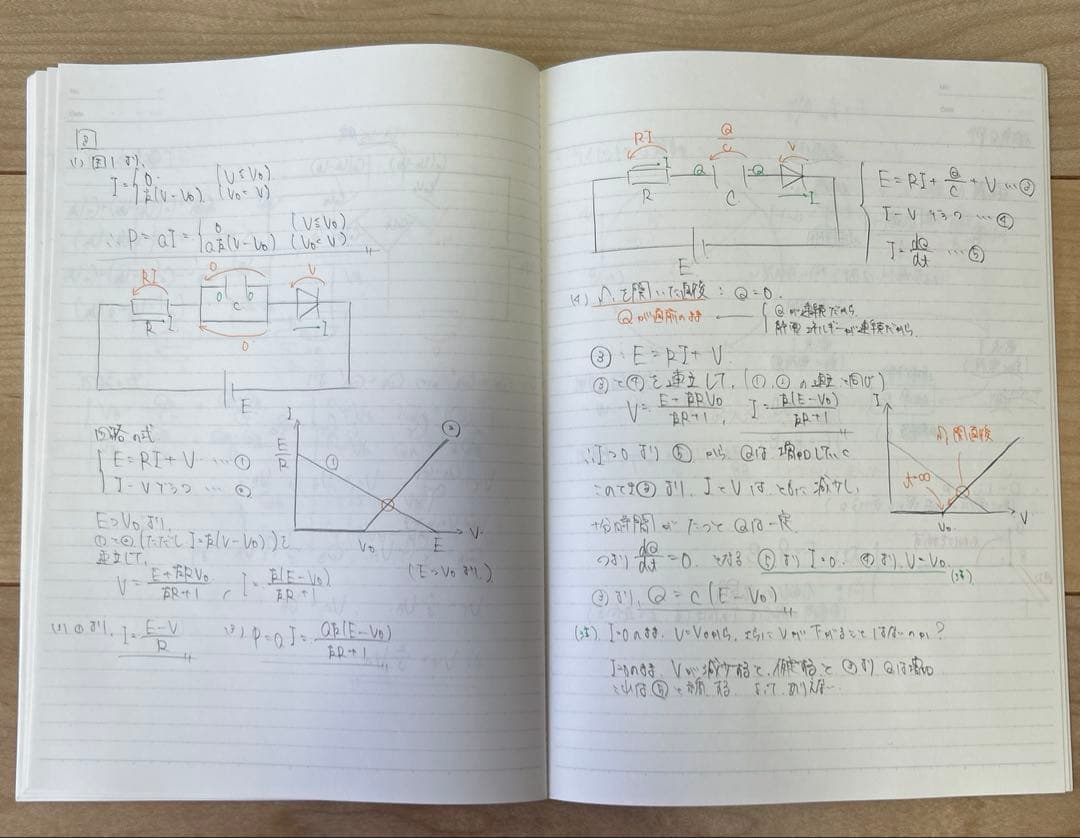 3
(1) 図1より,
I = { 0 (V ≦ V₀)
k(V-V₀) (V₀ < V)
∴ P = aI = { 0 (V ≦ V₀)
ak(V-V₀) (V₀ < V)
RI 0 V
R I 0 C 0 I
0
E
回路の式
{ E = RI + V …… ①
I-Vグラフ … ②
E > V₀ より,
①と②(ただし I = k(V-V₀))を
連立して,
V = (E + kRV₀)/(kR+1), I = k(E-V₀)/(kR+1)
I E/R ① ② V₀ E V
(E > V₀ より)
(2) ①より, I = (E-V)/R
(3) P = aI = ak(E-V₀)/(kR+1)
RI Q/C V
R I Q C Q I
E
E = RI + Q/C + V … ③
I-Vグラフ … ④
I = dQ/dt … ⑤
(4) を開いた直後 : Q = 0.
Qが直前のまま { Qが連続だから
静電エネルギーが連続だから
③ : E = RI + V.
③と④を連立して, (①, ②の連立と同じ)
V = (E + kRV₀)/(kR+1), I = k(E-V₀)/(kR+1)
∴ I > 0 より ⑤ から Qは増加していく
このとき③より, IとVはともに減少し,
十分時間がたつと Qは一定
つまり dQ/dt = 0. となる ⑤より I = 0. ④より, V = V₀.
(注)
I 開直後 t→∞ V₀ V
③より, Q = C(E-V₀)
(注). I=0のまま, V=V₀から, さらにVが下がることはないのか?
I=0のまま, Vが減少すると仮定すると ③より Qは増加
これは⑤と矛盾する よって ありえない